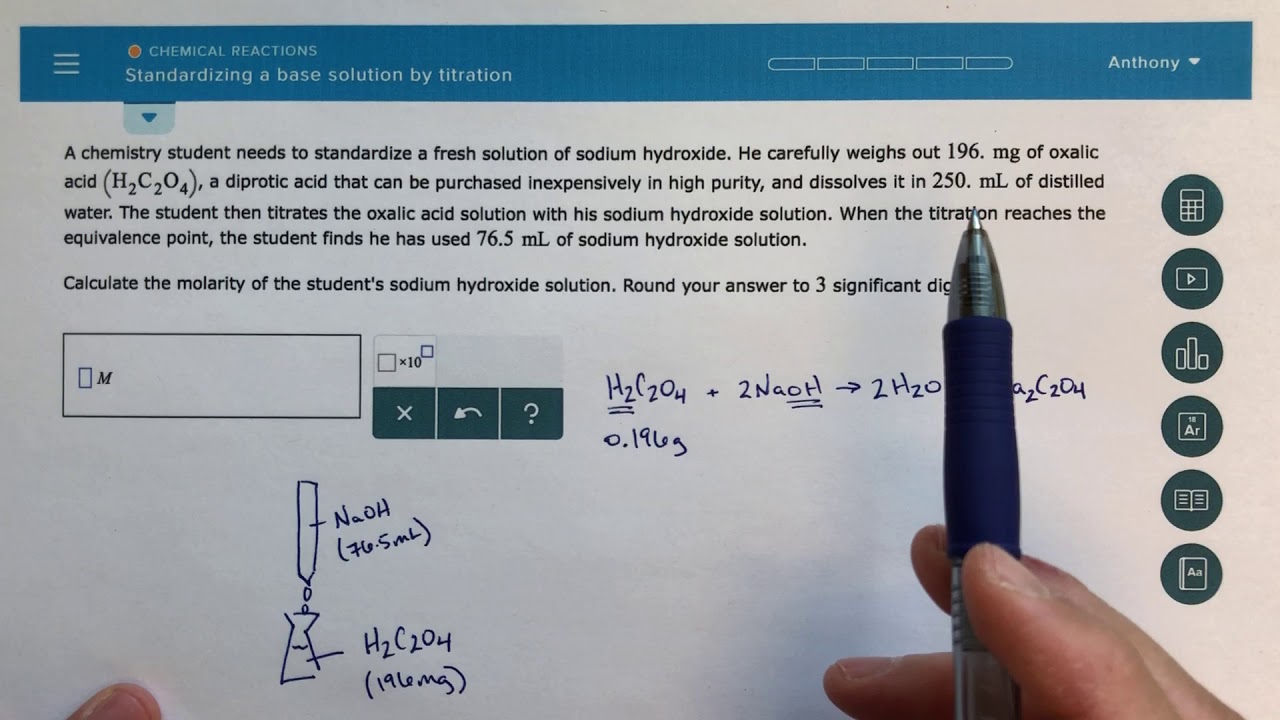 CHEMICAL REACTIONS
Standardizing a base solution by titration
Anthony
A chemistry student needs to standardize a fresh solution of sodium hydroxide. He carefully weighs out 196. mg of oxalic
acid (H₂C₂O₄), a diprotic acid that can be purchased inexpensively in high purity, and dissolves it in 250. mL of distilled
water. The student then titrates the oxalic acid solution with his sodium hydroxide solution. When the titration reaches the
equivalence point, the student finds he has used 76.5 mL of sodium hydroxide solution.
Calculate the molarity of the student's sodium hydroxide solution. Round your answer to 3 significant
M
×10
× ?
H₂C₂O₄ + 2NaOH → 2H₂O a₂C₂O₄
0.196g
NaOH
(76.5mL)
H₂C₂O₄
(196mg)
18
Ar
Aa